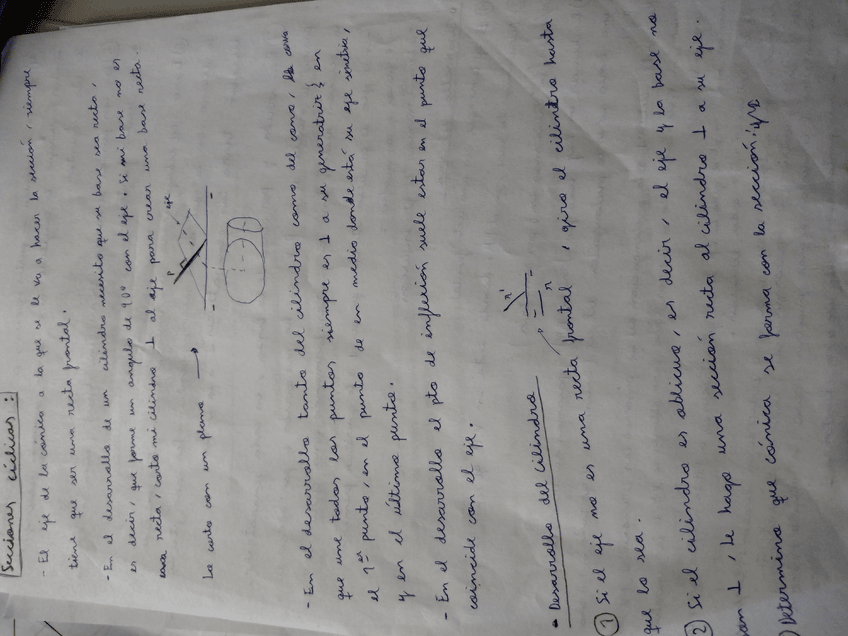 Secciones cíclicas:
- El eje de la cónica a la que se le va a hacer la sección, siempre
tiene que ser una recta frontal.
- En el desarrollo de un cilindro necesito que su base sea recta,
es decir, que forme un angulo de 90º con el eje. Si mi base no es
una recta, corto mi cilindro ⊥ al eje para crear una base recta.
La corto con un plano →
P
eje
- En el desarrollo tanto del cilindro como del cono, la curva
que une todos los puntos siempre es ⊥ a su generatriz en
el 1er punto, en el punto de en medio donde está su eje
y en el último punto.
- En el desarrollo el pto de inflexión suele estar en el punto que
coincide con el eje.
- Desarrollo del cilindro
r'
r
1 Si el eje no es una recta frontal, giro el cilindro hasta
que lo sea.
2 Si el cilindro es oblicuo, es decir, el eje y la base no
son ⊥, le hago una sección recta al cilindro ⊥ a su eje.
Determino que cónica se forma con la sección: